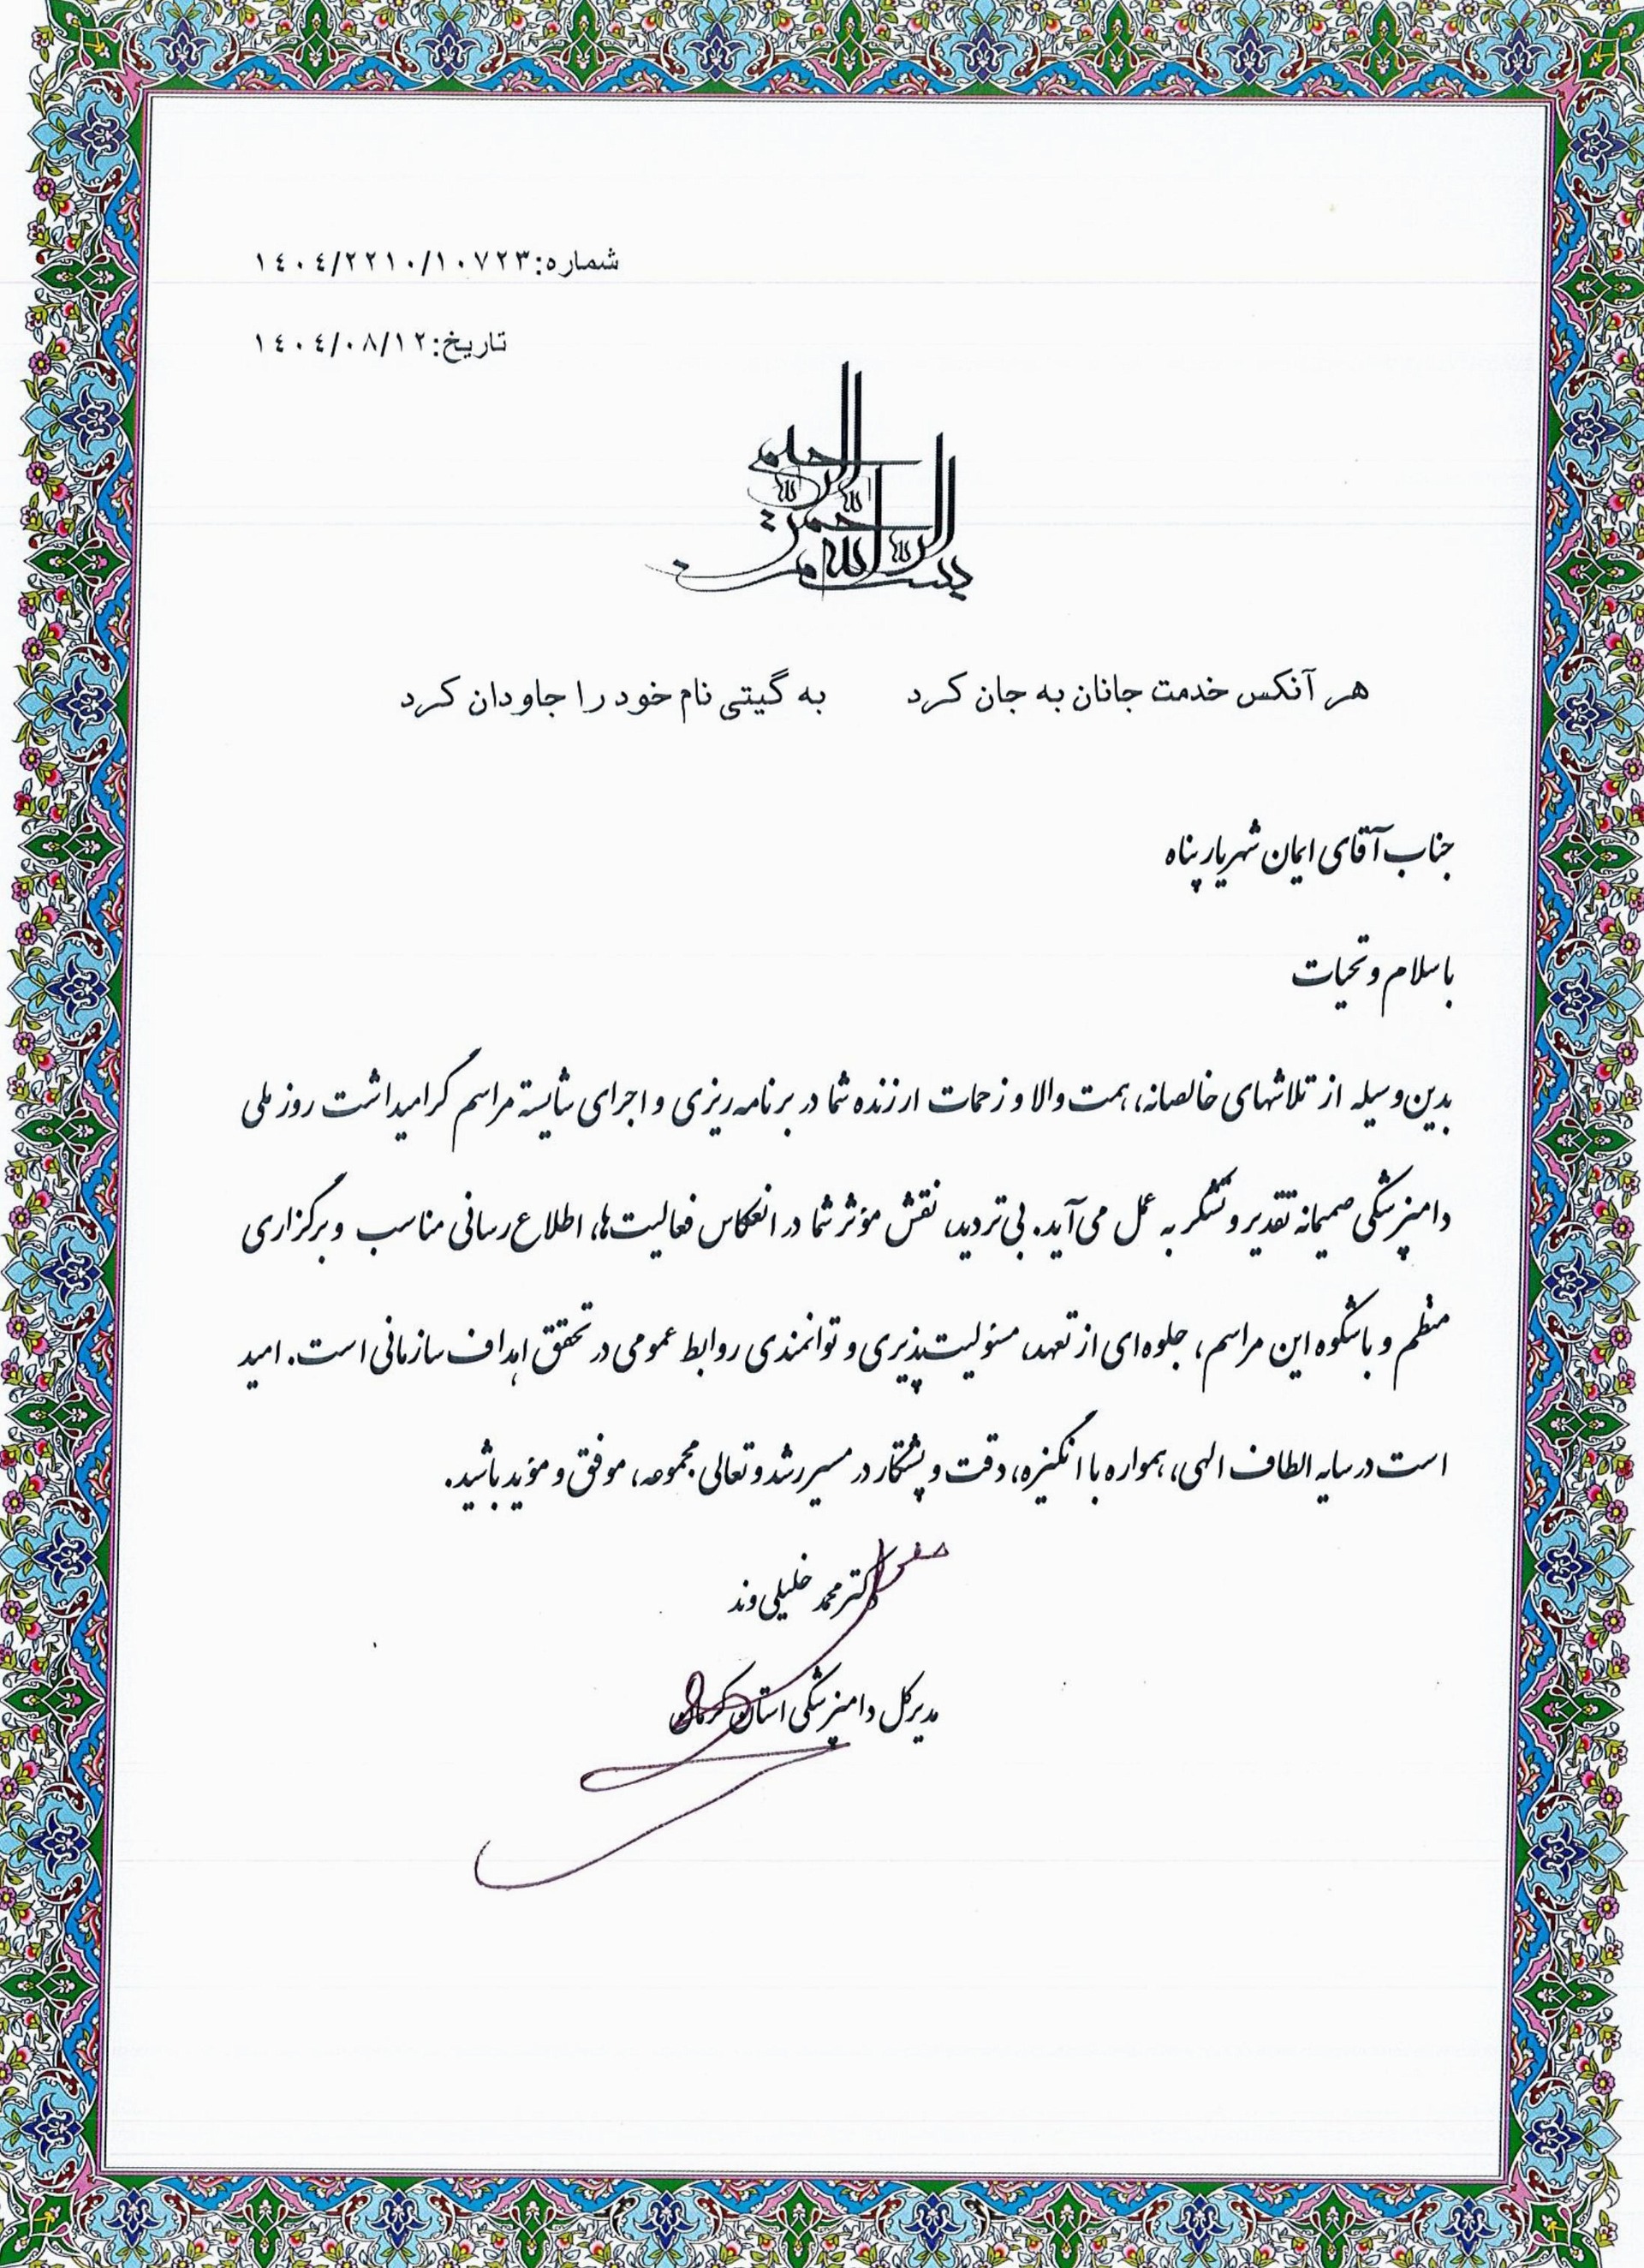 شماره:۱٤۰٤/۲۲۱۰/۱۰۷۲۳
تاریخ:۱٤۰٤/۰۸/۱۲
بسم الله الرحمن الرحیم
هر آنکس خدمت جانان به جان کرد به گیتی نام خود را جاودان کرد
جناب آقای ایمان شهریارپناه
باسلام و تحیات
بدین‌وسیله از تلاشهای خالصانه، همت والا و زحمات ارزنده شما در برنامه‌ریزی و اجرای شایسته مراسم گرامیداشت روز ملی
دامپزشکی صمیمانه تقدیر و تشکر به عمل می‌آید. بی‌تردید، نقش مؤثر شما در انعکاس فعالیت‌ها، اطلاع‌رسانی مناسب و برگزاری
منظم و باشکوه این مراسم، جلوه‌ای از تعهد، مسئولیت‌پذیری و توانمندی روابط عمومی در تحقق اهداف سازمانی است. امید
است در سایه الطاف الهی، همواره با انگیزه، دقت و پشتکار در مسیر رشد و تعالی مجموعه، موفق و مؤید باشید.
دکتر محمد خلیلی وند
مدیرکل دامپزشکی استان کرمان